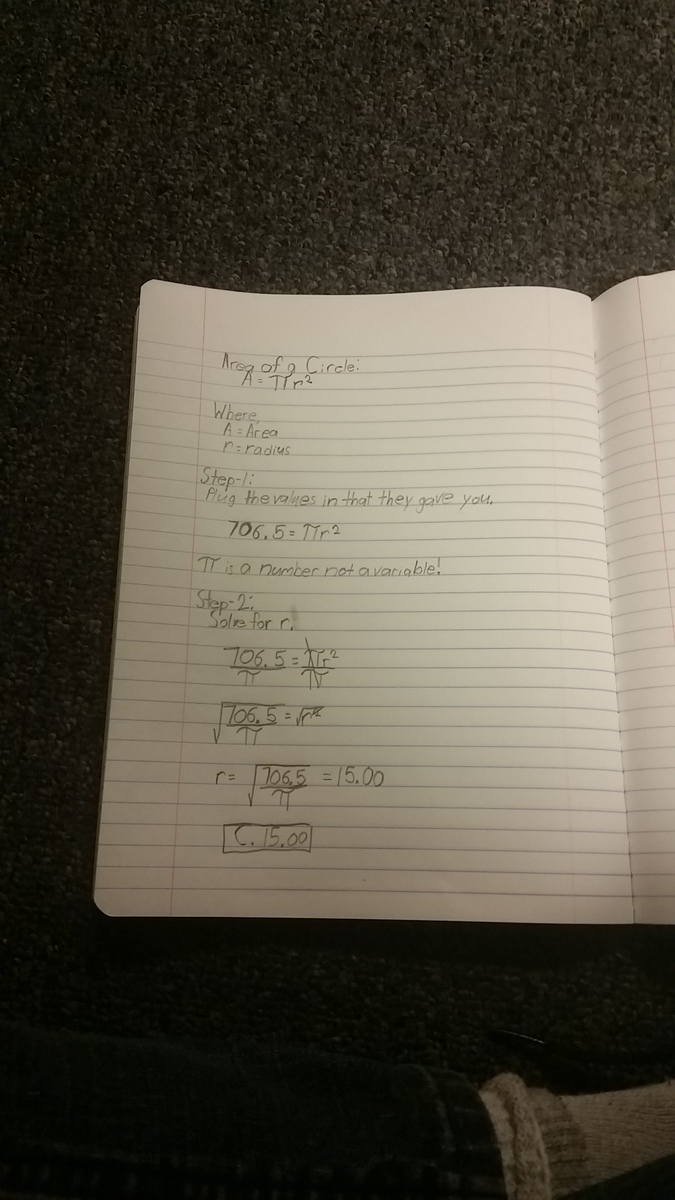 Area of a Circle:
A = πr²
Where,
A = Area
r = radius
Step-1:
Plug the values in that they gave you.
706.5 = πr²
π is a number not a variable!
Step-2:
Solve for r.
706.5/π = πr²/π
√(706.5/π) = √r²
r = √(706.5/π) = 15.00
C. 15.00